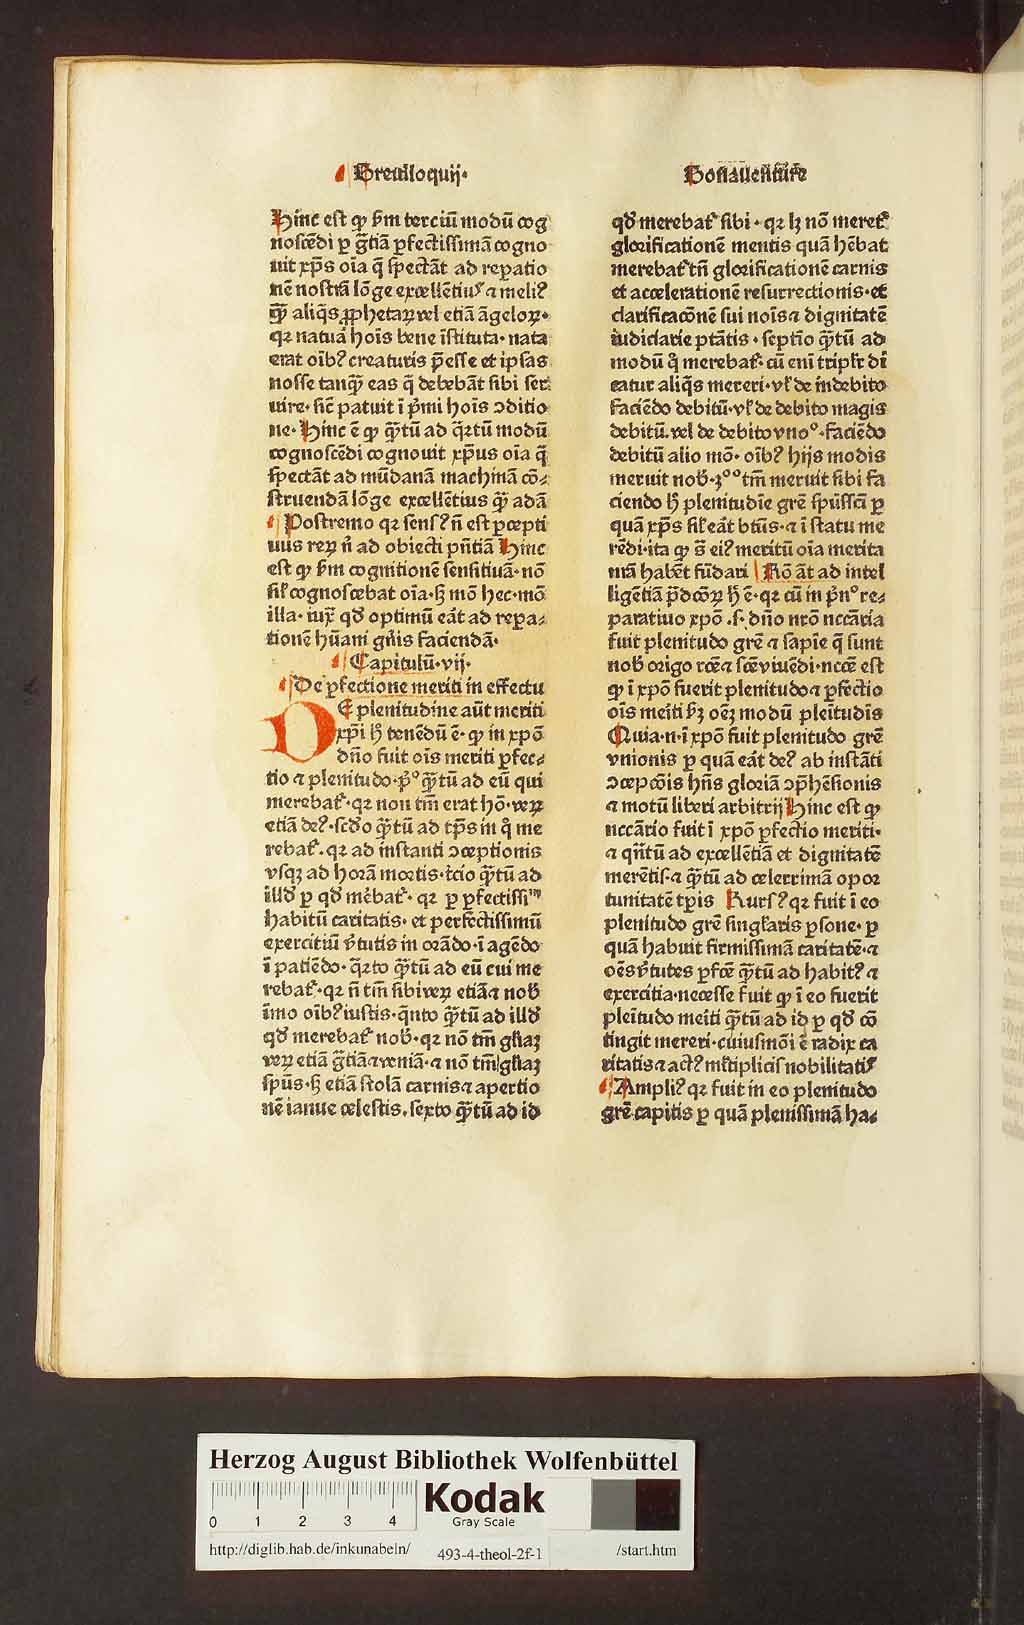 Breuiloquij·
Bonauenture
Hinc est ꝙ ẜm terciū modū cog
noscēdi ꝑ gr̄tiā ꝑfectissimā cogno
uit xp̄s oīa q̄ spectāt ad reꝑatio
nē nostrā lōge excellētiꝰ ⁊ meliꝰ
qꝫ̄ aliq̄s ꝓphetaꝝ vel etiā āgeloꝝ·
qꝛ natura hoīs bene īstituta· nata
erat oībꝰ creaturis p̄esse et ipsas
nosse tanqꝫ̄ eas q̄ debebāt sibi ser
uire· sic̄ patuit ī pͥmi hoīs ꝯditio
ne· Hinc ē ꝙ qꝫ̄tū ad q̄rtū modū
cognoscēdi cognouit xp̄us oīa q̄
spectāt ad mūdanā machinā cō⸗
struendā lōge excellētius qꝫ̄ adā
Postremo qꝛ sensꝰ n̄ est ꝑcepti
uus reꝝ nͥ ad obiecti pn̄tiā Hinc
est ꝙ ẜm cognitionē sensitiuā· nō
sil̄ cognoscebat oīa· sꝫ mō hec· mō
illa· iuxͣ qd̄ optimū eāt ad reꝑa⸗
tionē hūani gn̄is faciendā·
Capitulū· vij·
De ꝑfectione meriti in effectu
DE plenitudine aūt meriti
xp̄i h̄ tenēdū ē· ꝙ in xp̄o
dn̄o fuit oīs meriti ꝑfec⸗
tio ⁊ plenitudo· pͥº qꝫ̄tū ad eū qui
merebat᷑· qꝛ non tm̄ erat hō· veꝝ
etiā deꝰ· scd̄o qꝫ̄tū ad tp̄s in qͦ me
rebat᷑· qꝛ ad instanti ꝯceptionis
vsqꝫ ad horā mortis· tͥcio qꝫ̄tū ad
illd̄ ꝑ qd̄ mēbat᷑· qꝛ ꝑ ꝑfectissiᵐ
habitū caritatis· et perfectissimū
exercitiū ꝟtutis in orādo· ī agēdo
ī patiēdo· q̄rto qꝫ̄tū ad eū cui me
rebat᷑· qꝛ n̄ tm̄ sibi veꝝ etiā ⁊ nob̄
īmo oībꝰ iustis· qͥnto qꝫ̄tū ad illd̄
qd̄ merebat᷑ nob̄· qꝛ nō tm̄ gl̄iaꝫ
veꝝ etiā gr̄tiā ⁊ veniā· ⁊ nō tm̄ gl̄iaꝫ
sp̄us· sꝫ etiā stolā carnis ⁊ apertio
nē ianue celestis. sexto qꝫ̄tū ad id
qd̄ merebat᷑ sibi· qꝛ lꝫ nō meret᷑
glorificationē mentis quā hēbat
merebat᷑ tn̄ glorificationē carnis
et accelerationē resurrectionis· et
clarificacōnē sui noīs ⁊ dignitatē
iudiciarie ptātis· septīo qꝫ̄tū ad
modū qͦ merebat᷑· cū enī tripl̄r di
catur aliq̄s mereri· vl̄ de indebito
faciēdo debitū· vl̄ de debito magis
debitū. vel de debito vnoº· faciēdo
debitū alio mō· oībꝰ hijs modis
meruit nob̄· ȝºº tm̄ meruit sibi fa
ciendo h̄ plenitudīe grē sp̄ūssc̄i ꝑ
quā xp̄s sil̄ eāt btūs· ⁊ ī statu me
rēdi· ita ꝙ sͣ eiꝰ meritū oīa merita
nr̄a habēt fūdari Rō āt ad intel
ligētiā p̄dcōꝝ h̄ ē· qꝛ cū in pͥnº re⸗
paratiuo xp̄o .s. dn̄o nr̄o nccāria
fuit plenitudo grē ⁊ sapie q̄ sunt
nob̄ origo rcē ⁊ scē viuēdi· nccē est
ꝙ ī xp̄o fuerit plenitudo ⁊ ꝑfectio
oīs meīti ẜꝫ oēꝫ modū pleītudīs
Quia .n. ī xp̄o fuit plenitudo grē
vnionis ꝑ quā eāt deꝰ ab instāti
ꝯcepcōis hn̄s gloriā ꝯp̄hēsionis
⁊ motū liberi arbitrij Hinc est ꝙ
nccārio fuit ī xp̄o ꝑfectio meriti·
⁊ qn̄tū ad excellētiā et dignitatē
merētis· ⁊ qꝫ̄tū ad celerrimā opor
tunitatē tꝑis Rursꝰ qꝛ fuit ī eo
plenitudo grē singl̄aris ꝑsone· ꝑ
quā habuit firmissimā caritatē· ⁊
oēs ꝟtutes ꝑfcē qꝫ̄tū ad habitꝰ ⁊
exercitia· necesse fuit ꝙ ī eo fuerit
pleītudo meīti qꝫ̄tū ad id ꝑ qd̄ cō
tingit mereri· cuiusmōi ē radix ca
ritatis ⁊ actꝰ ml̄tiplicis nobilitatis
Ampliꝰ qꝛ fuit in eo plenitudo
grē capitis ꝑ quā plenissimā ha⸗
Herzog August Bibliothek Wolfenbüttel
0 1 2 3 4
Kodak
Gray Scale
http://diglib.hab.de/inkunabeln/ 493-4-theol-2f-1 /start.htm